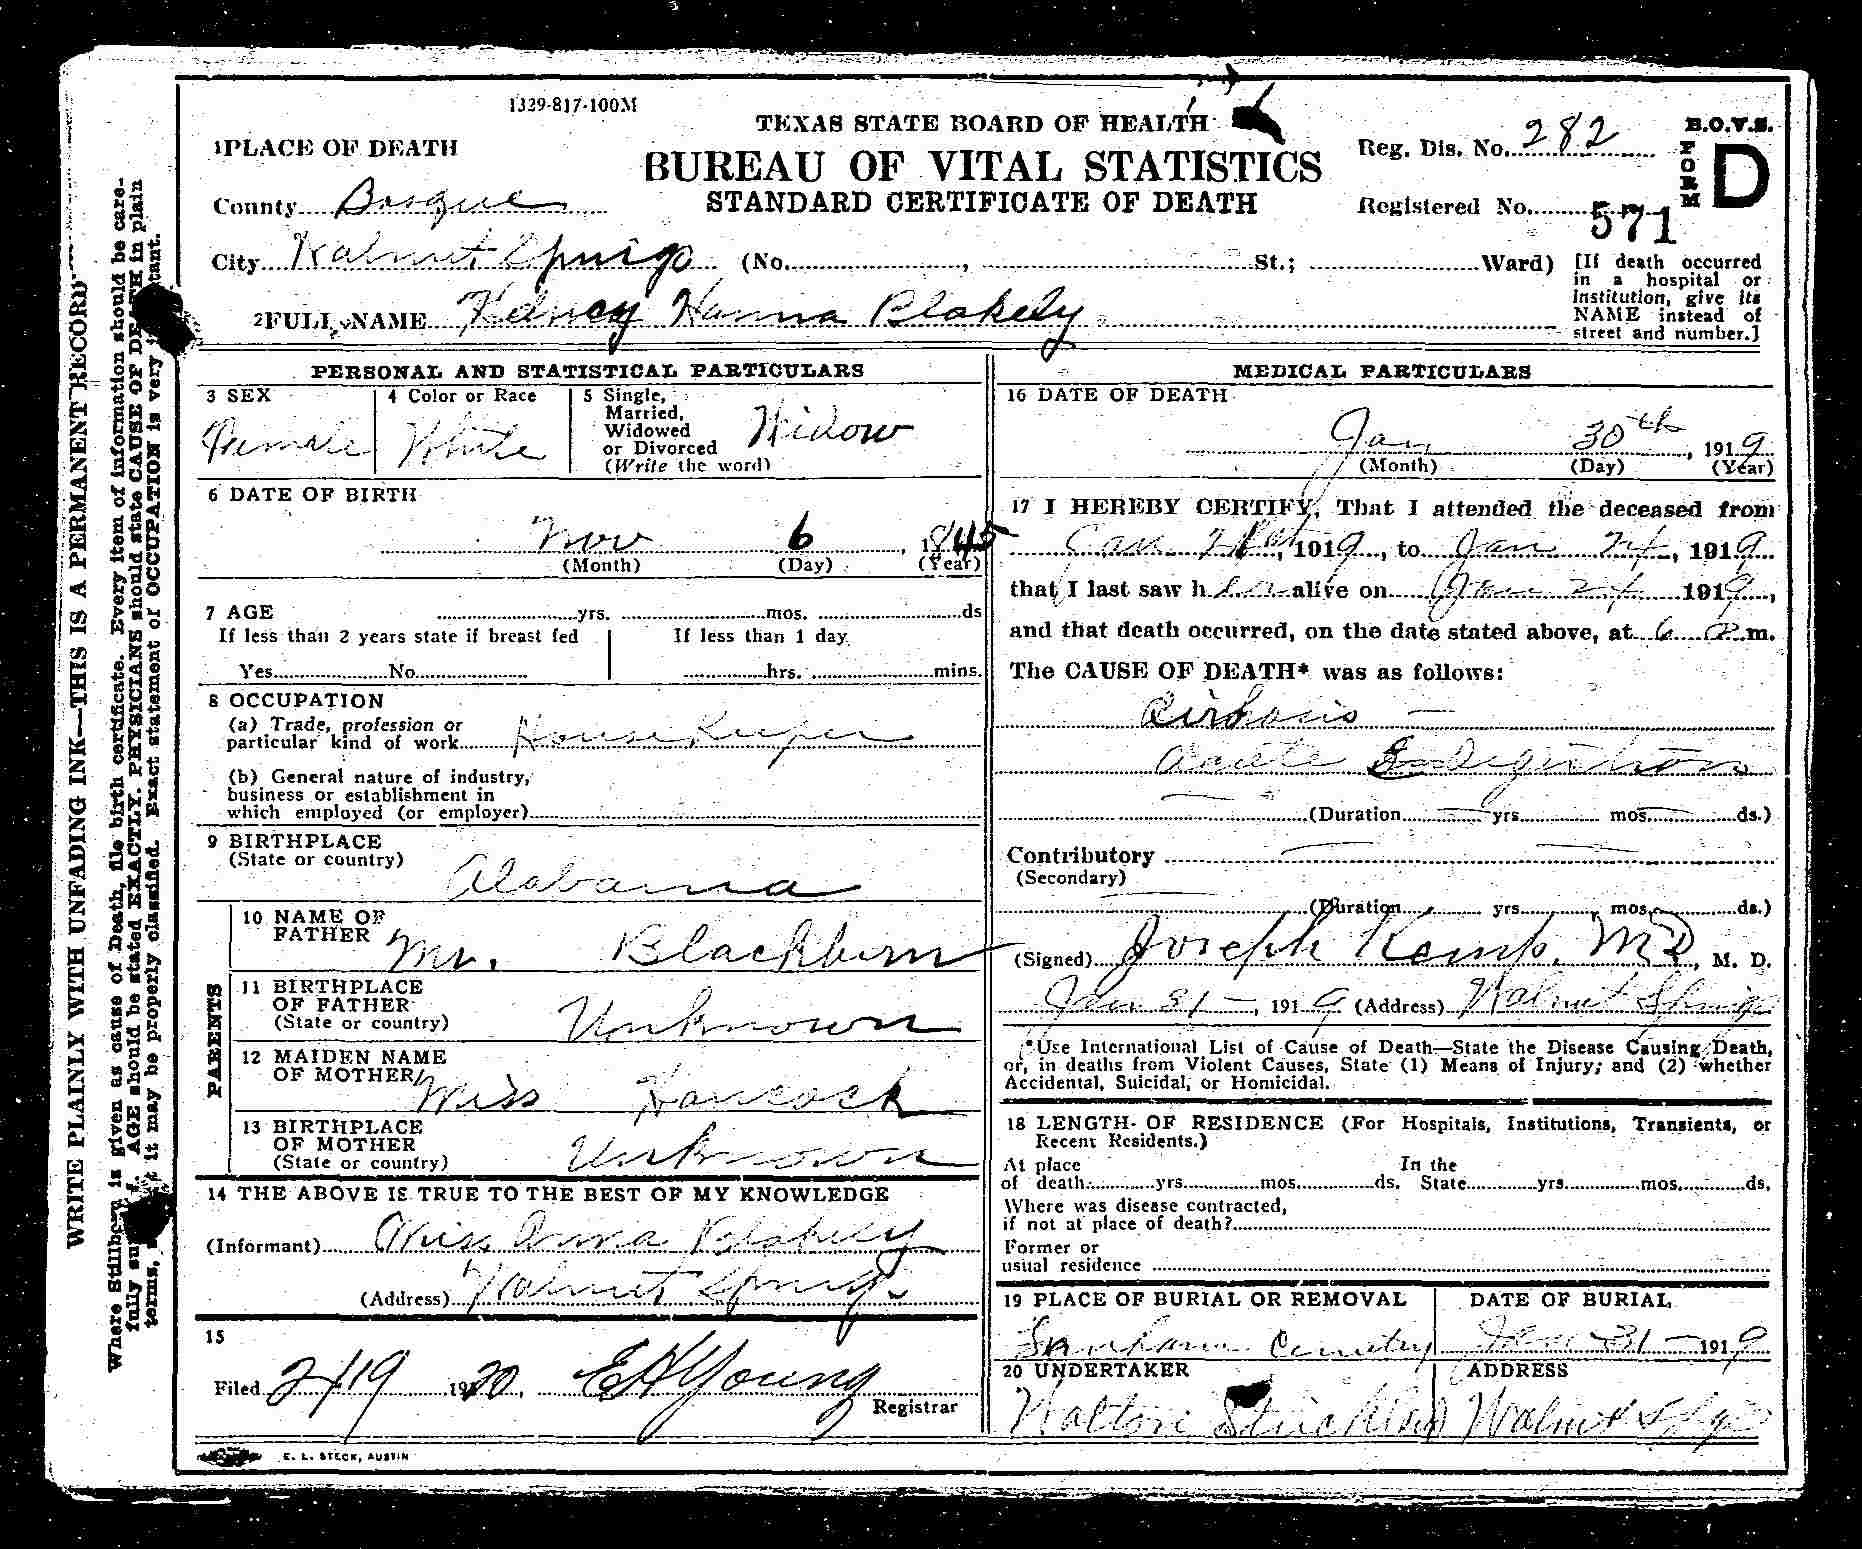 1329-817-100M
TEXAS STATE BOARD OF HEALTH
BUREAU OF VITAL STATISTICS
STANDARD CERTIFICATE OF DEATH
Reg. Dis. No. 282
Registered No. 571
B.O.V.S.
FORM D
1 PLACE OF DEATH
County Bosque
City Walnut Springs (No. , St.; Ward)
[If death occurred
in a hospital or
institution, give its
NAME instead of
street and number.]
2 FULL NAME Hanna Blakely
PERSONAL AND STATISTICAL PARTICULARS
3 SEX
Female
4 Color or Race
White
5 Single,
Married,
Widowed
or Divorced
(Write the word)
Widow
6 DATE OF BIRTH
Nov 6, 1845
(Month) (Day) (Year)
7 AGE yrs. mos. ds
If less than 2 years state if breast fed
Yes No
If less than 1 day
hrs. mins.
8 OCCUPATION
(a) Trade, profession or
particular kind of work House Keeper
(b) General nature of industry,
business or establishment in
which employed (or employer)
9 BIRTHPLACE
(State or country)
Alabama
PARENTS
10 NAME OF
FATHER
Mr. Blackburn
11 BIRTHPLACE
OF FATHER
(State or country)
Unknown
12 MAIDEN NAME
OF MOTHER
Miss Hancock
13 BIRTHPLACE
OF MOTHER
(State or country)
Unknown
14 THE ABOVE IS TRUE TO THE BEST OF MY KNOWLEDGE
(Informant) Miss Anna Blakely
(Address) Walnut Springs
15
Filed 2/19 1920. E H Young
Registrar
MEDICAL PARTICULARS
16 DATE OF DEATH
Jan 30th, 1919
(Month) (Day) (Year)
17 I HEREBY CERTIFY, That I attended the deceased from
Jan , 1919, to Jan 24, 1919
that I last saw her alive on Jan 24 1919,
and that death occurred, on the date stated above, at 6 P.m.
The CAUSE OF DEATH* was as follows:
Cirhosis —
Acute Indigestion
(Duration yrs. mos. ds.)
Contributory
(Secondary)
(Duration yrs. mos. ds.)
(Signed) Joseph Kemp, MD, M. D.
Jan 31 -, 1919 (Address) Walnut Springs
*Use International List of Cause of Death—State the Disease Causing Death,
or, in deaths from Violent Causes, State (1) Means of Injury; and (2) whether
Accidental, Suicidal, or Homicidal.
18 LENGTH OF RESIDENCE (For Hospitals, Institutions, Transients, or
Recent Residents.)
At place In the
of death yrs. mos. ds. State yrs. mos. ds.
Where was disease contracted,
if not at place of death?
Former or
usual residence
19 PLACE OF BURIAL OR REMOVAL
Cemetery
DATE OF BURIAL
Jan 31 - 1919
20 UNDERTAKER
Walton Strickland
ADDRESS
Walnut Spgs
E. L. STECK, AUSTIN
WRITE PLAINLY WITH UNFADING INK—THIS IS A PERMANENT RECORD
Where Stillborn is given as cause of Death, file birth certificate. Every item of information should be care-
fully . AGE should be stated EXACTLY. PHYSICIANS should state CAUSE OF DEATH in plain
terms, it may be properly classified. Exact statement of OCCUPATION is very